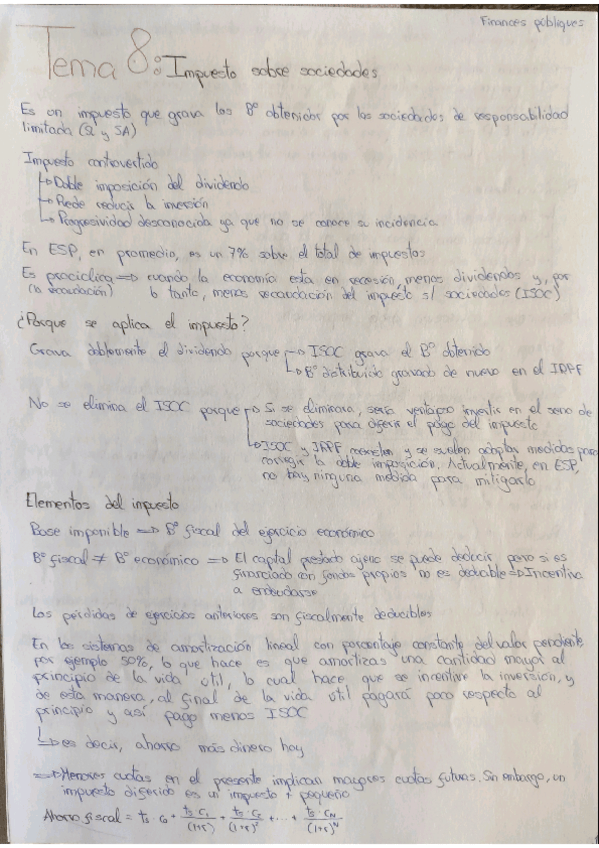 Finances públiques
Tema 8: Impuesto sobre sociedades
Es un impuesto que grava los Bº obtenidos por las sociedades de responsabilidad
limitada (SL y SA)
Impuesto controvertido
↳ Doble imposición del dividendo
↳ Puede reducir la inversión
↳ Progresividad desconocida ya que no se conoce su incidencia
En ESP, en promedio, es un 7% sobre el total de impuestos
Es procíclica ⇒ cuando la economía esta en recesión, menos dividendos y, por
(la recaudación) lo tanto, menos recaudación del impuesto s/ sociedades (ISOC)
¿Porque se aplica el impuesto?
Grava doblemente el dividendo porque → ISOC grava el Bº obtenido
↳ Bº distribuido gravado de nuevo en el IRPF
No se elimina el ISOC porque → Si se eliminara, sería ventajoso invertir en el seno de
sociedades para diferir el pago del impuesto
↳ ISOC y IRPF coexisten y se suelen adoptar medidas para
corregir la doble imposición. Actualmente, en ESP,
no hay ninguna medida para mitigarlo
Elementos del impuesto
Base imponible ⇒ Bº fiscal del ejercicio económico
Bº fiscal ≠ Bº económico ⇒ El capital prestado ajeno se puede deducir, pero si es
financiado con fondos propios no es deducible ⇒ Incentiva
a endeudarse
Las pérdidas de ejercicios anteriores son fiscalmente deducibles
En los sistemas de amortización lineal con porcentaje constante del valor pendiente
por ejemplo 50%, lo que hace es que amortizas una cantidad mayor al
principio de la vida útil, lo cual hace que se incentive la inversión, y
de esta manera, al final de la vida util pagará poco respecto al
principio y así pago menos ISOC
↳ es decir, ahorro más dinero hoy
⇒ Menores cuotas en el presente implican mayores cuotas futuras. Sin embargo, un
impuesto diferido es un impuesto + pequeño
Ahorro fiscal = ts · c0 + ts · c1/(1+r) + ts · c2/(1+r)² + ... + ts · cN/(1+r)ᴺ